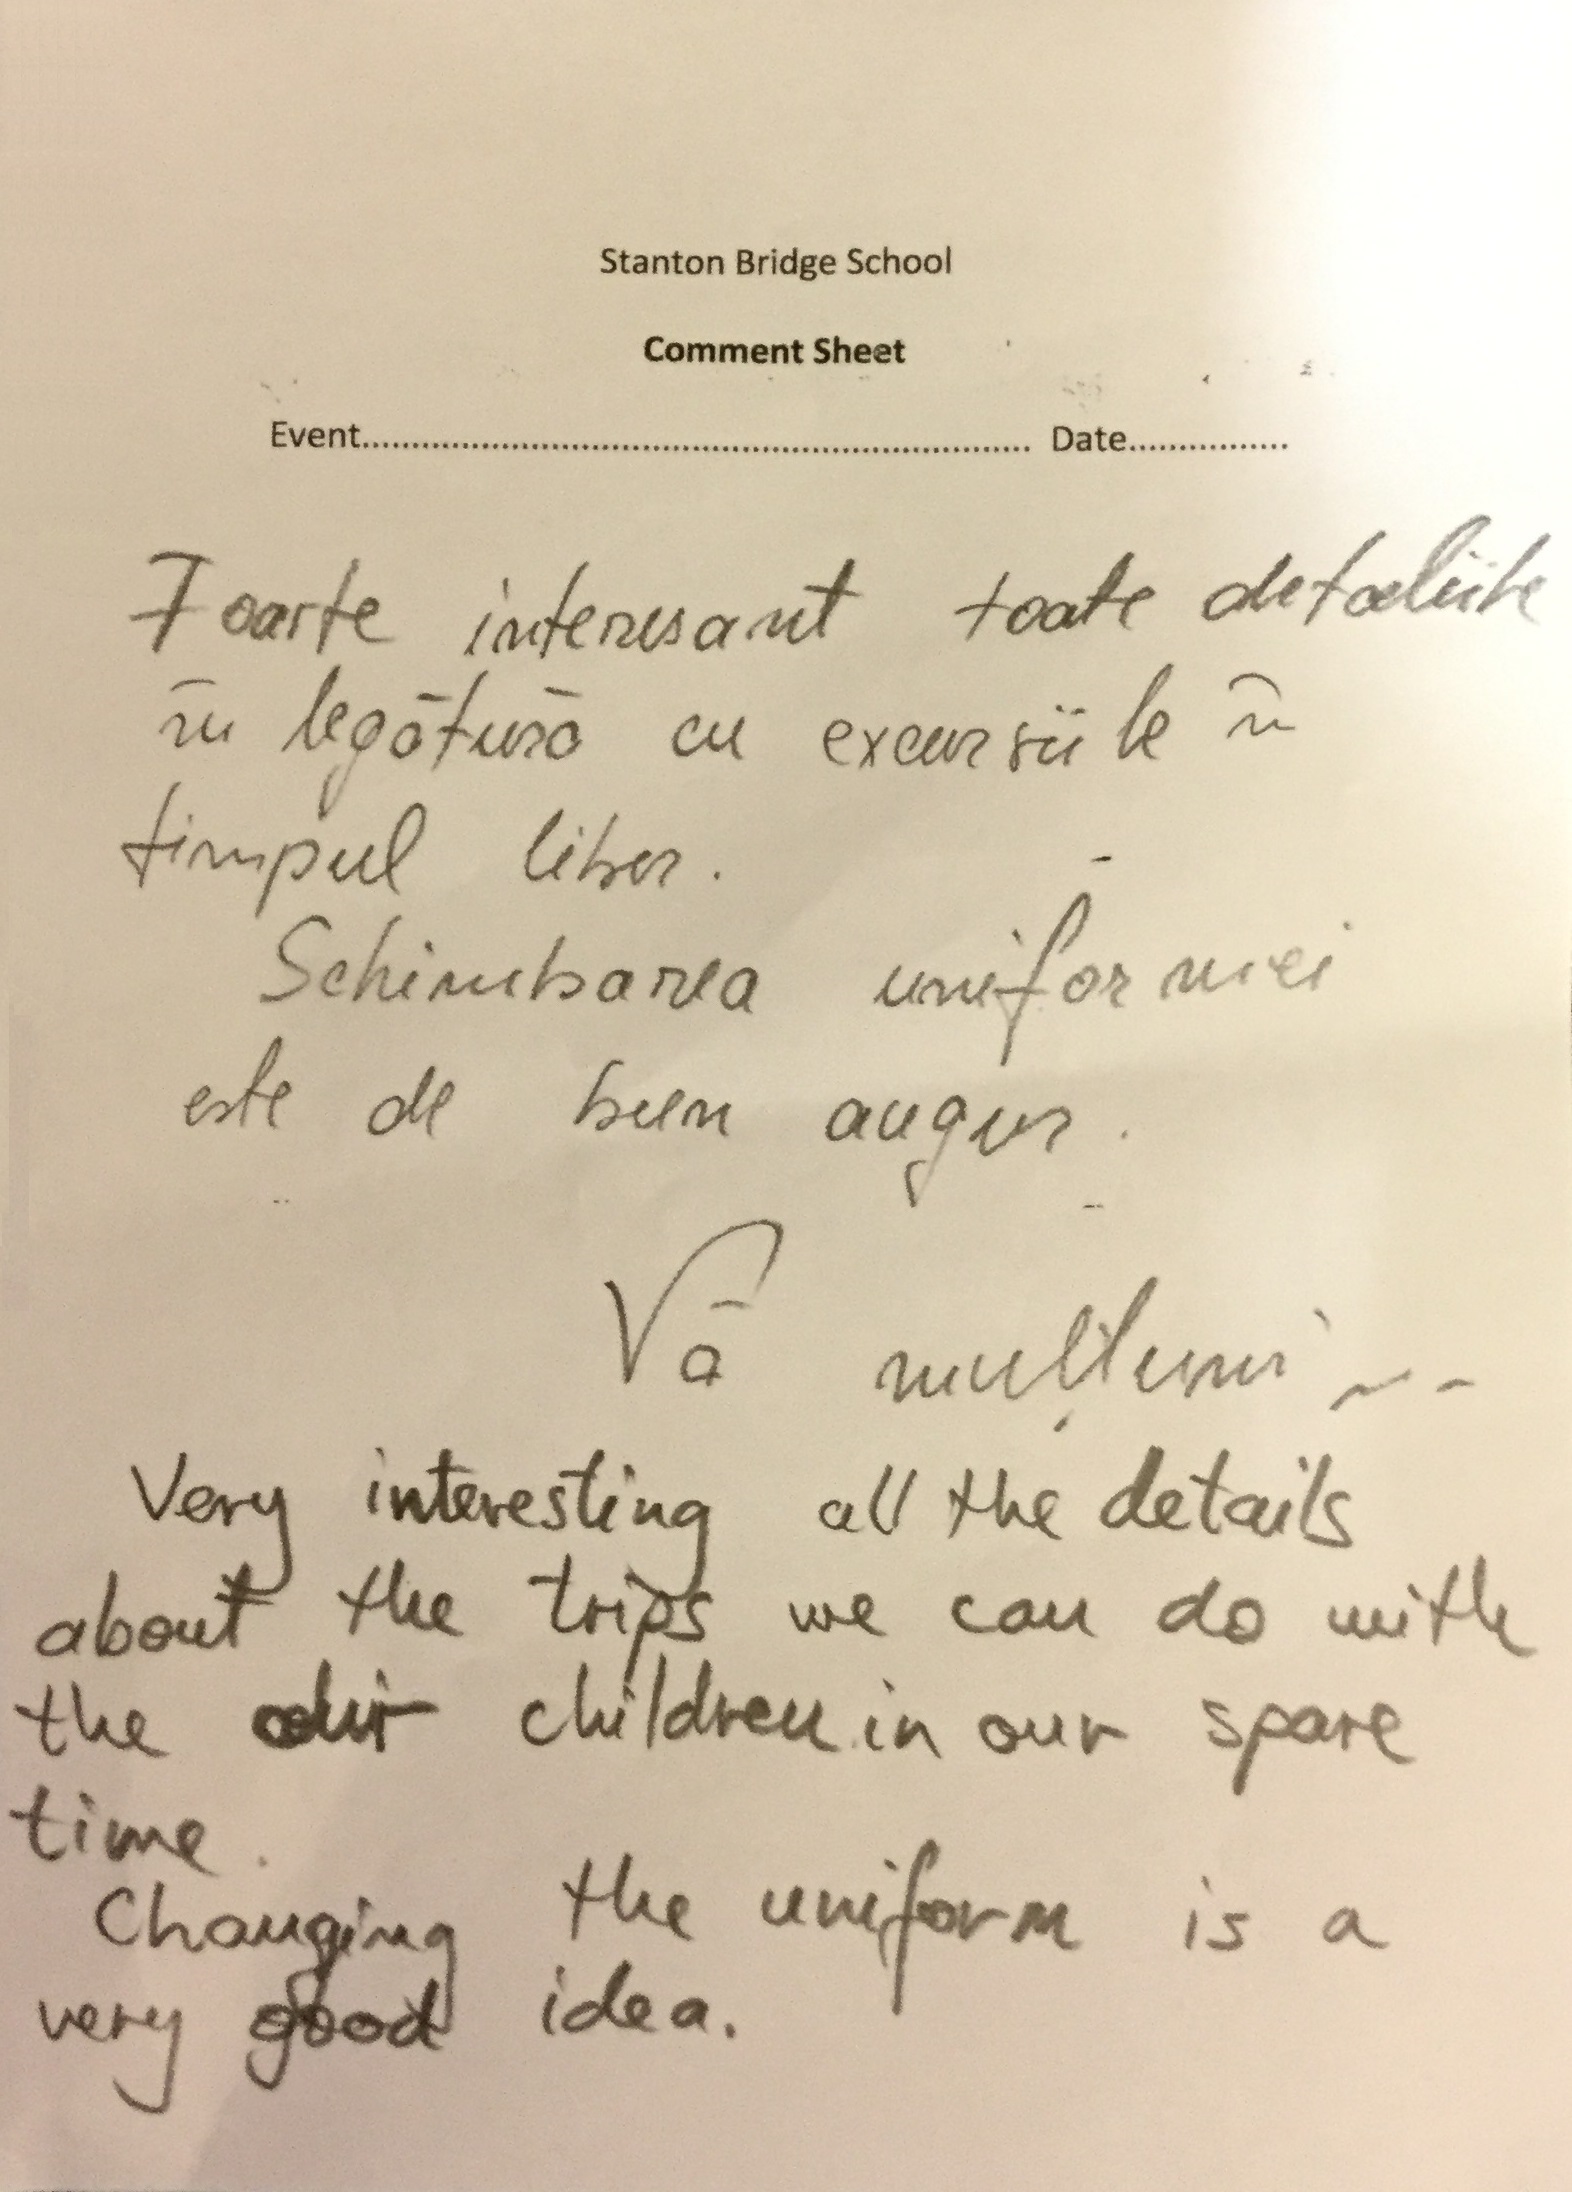 Stanton Bridge School
Comment Sheet
Event.................................................................... Date................
Foarte interesant toate detaliile
în legătură cu excursiile în
timpul liber.
Schimbarea uniformei
este de bun augur.
Vă mulțumi
Very interesting all the details
about the trips we can do with
the our children in our spare
time.
Changing the uniform is a
very good idea.